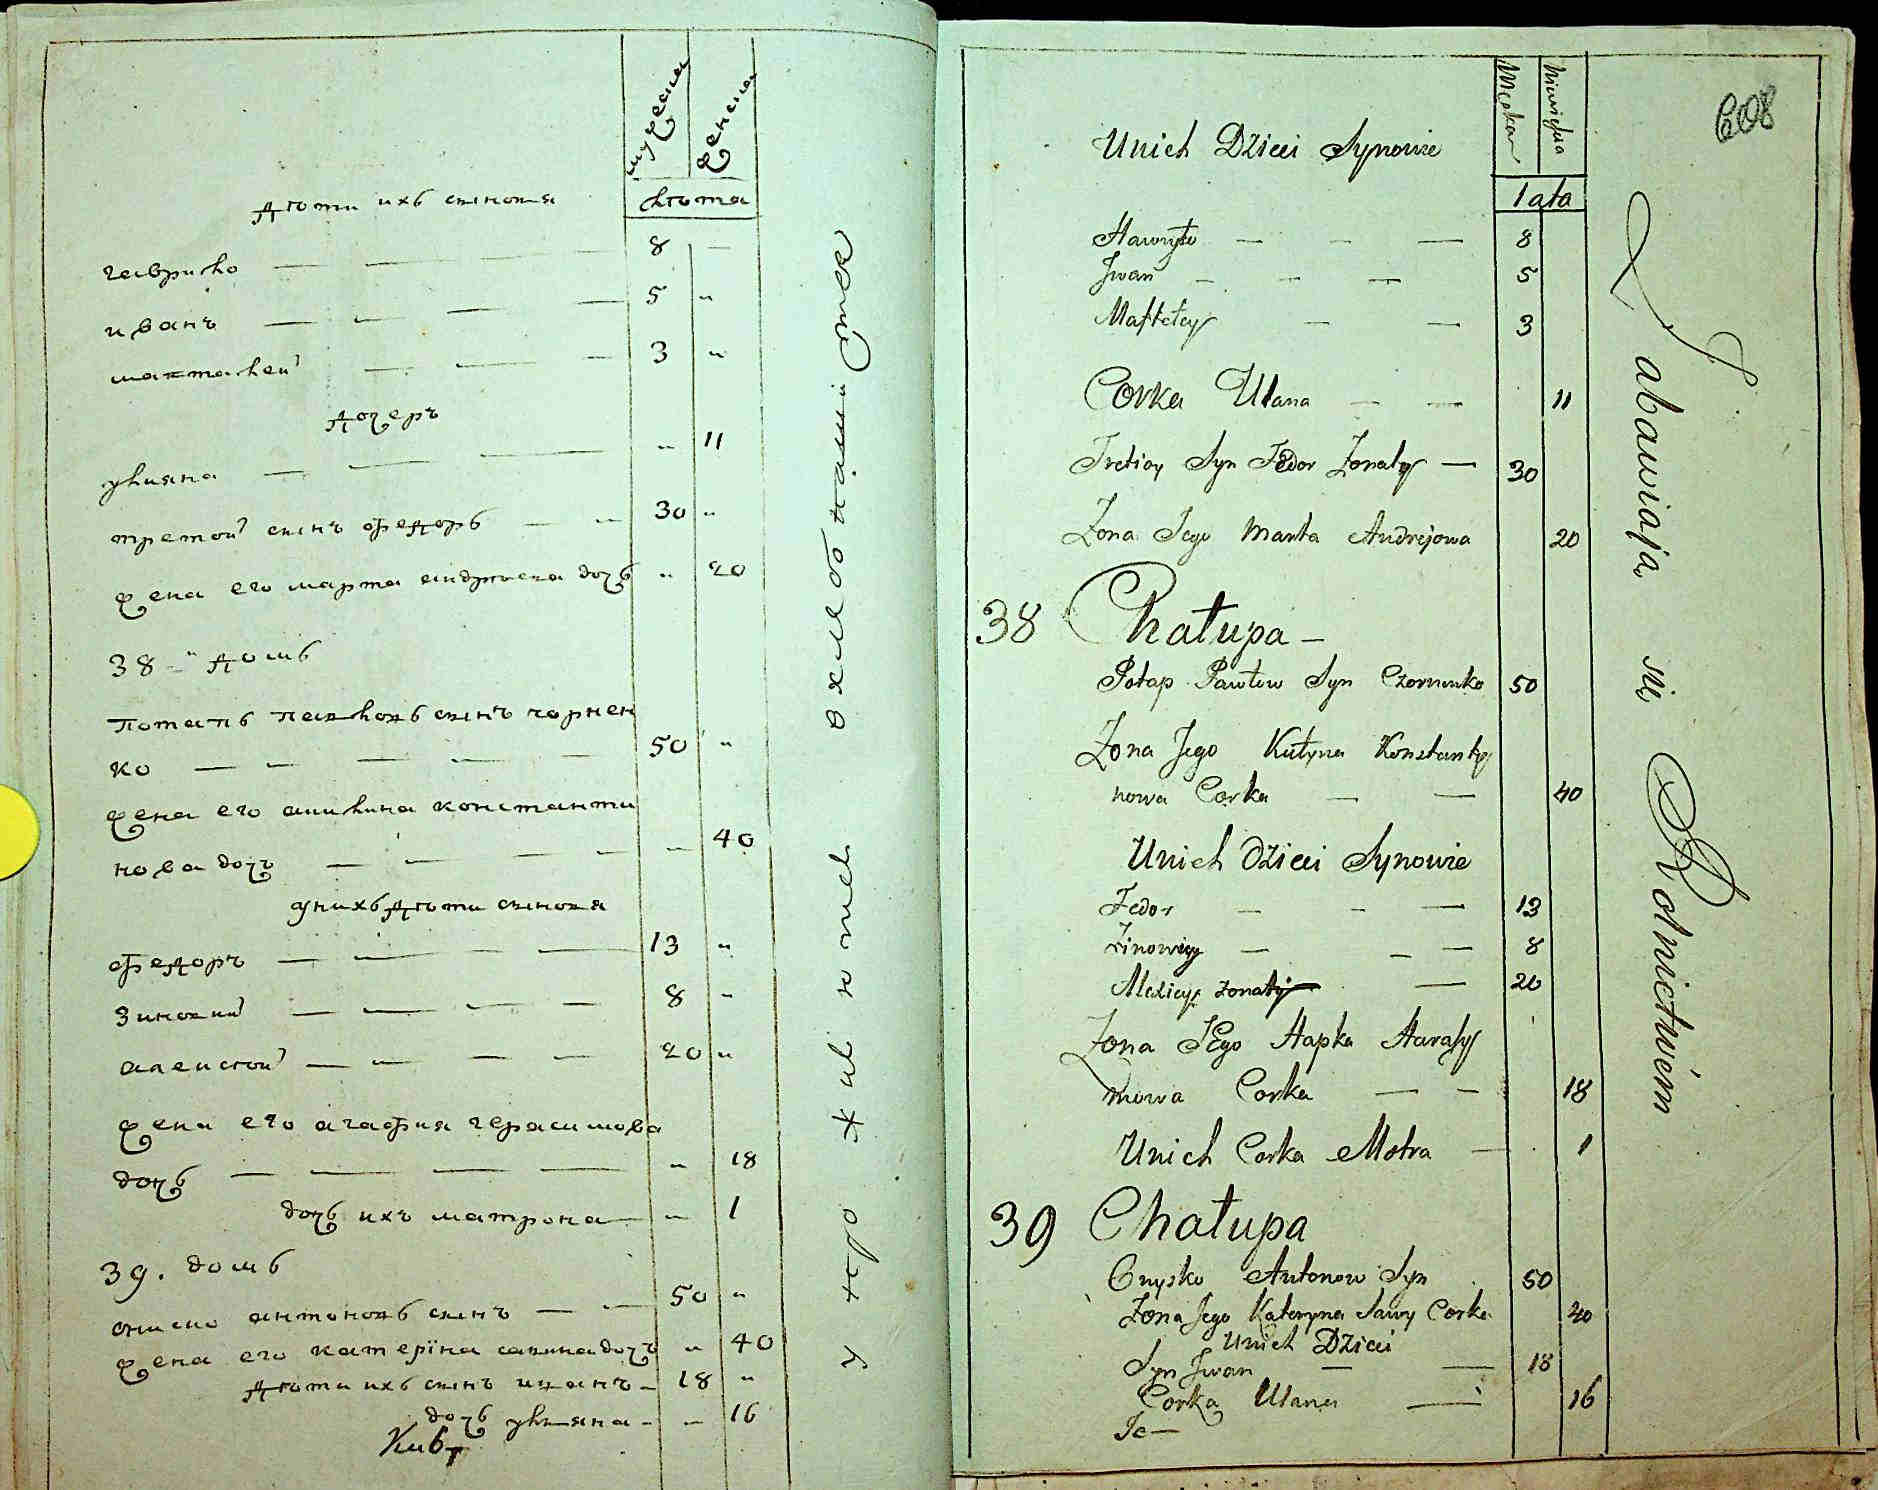 мужеска
женска
лѣта
дѣти ихъ сыновя
гаврило — — — — 8 —
иванъ — — — — 5 "
мактавей — — — 3 "
дочеръ
ульяна — — — " 11
третой сынъ федоръ — — 30 "
жена его марта андрѣева дочъ " 20
38 " домъ
потапъ павловъ сынъ чорнен
ко — — — — — 50 "
жена его акилина константи
нова дочъ — — — — " 40
у нихъ дѣти сыновя
федоръ — — — — 13 "
Зиновий — — — — 8 "
алексѣй — — — — 20 "
жена его агафия герасимова
дочъ — — — — " 18
дочъ ихъ матрона — " 1
39. домъ
ониско антоновъ сынъ — — 50 "
жена его катеріна савина дочъ " 40
дѣти ихъ сынъ иванъ — 18 "
дочъ ульяна — — 16
хлебопашество
608
Męzka
lata
Unich Dzieci Synowie
Hawryło — — — 8
Jwan — — — 5
Maftetey — — 3
Corka Ulana — — 11
Tretioy Syn Fedor Zonaty — 30
Zona Jego Marta Andrejowa 20
38 Chałupa —
Potap Pawłow Syn Czornenko 50
Zona Jego Kułyna Konstanty
nowa Corka — — 40
Unich Dzieci Synowie
Fedor — — — 13
Zinowiey — — — 8
Alexiey zonaty — 20
Zona JEgo Hapka Harasy
mowa Corka — — 18
Unich Corka Motra — 1
39 Chałupa
Onysko Antonow Syn 50
Zona Jego Kateryna Sawy Corka 40
Unich Dzieci
Syn Jwan — — 18
Corka Ulana — 16
Je—
Zabawiaja się Rolnictwém